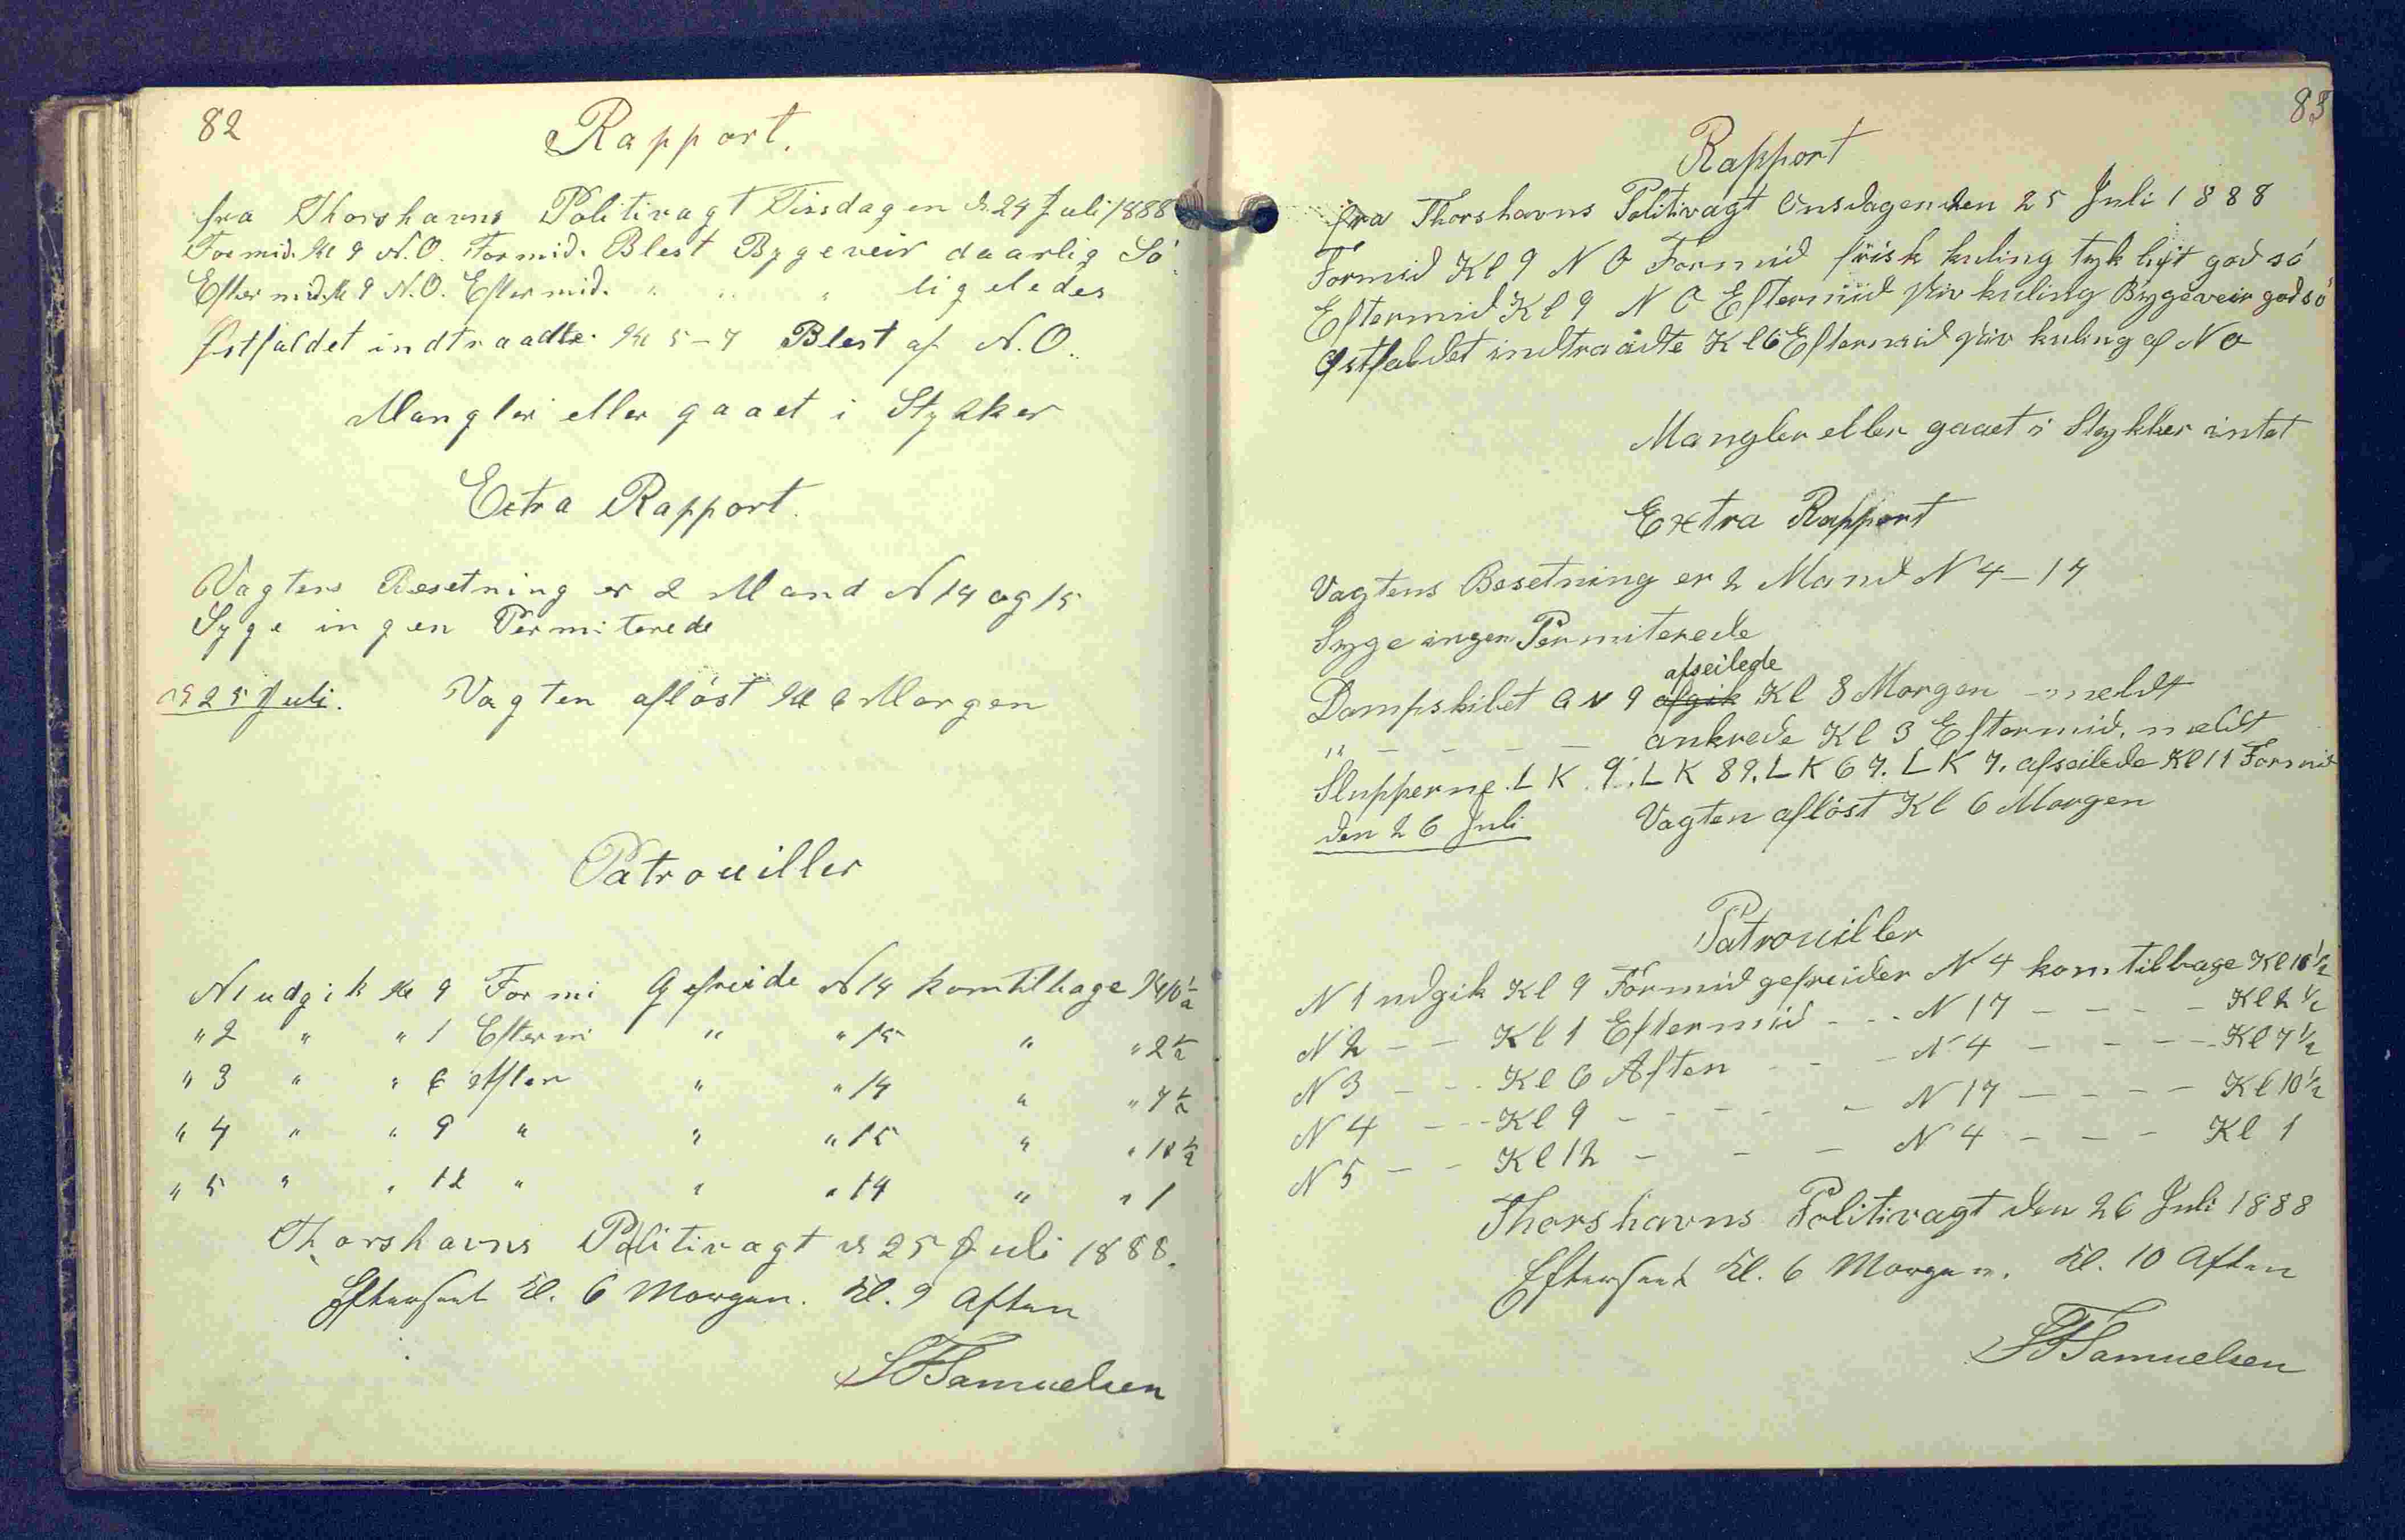 82
Rapport.
fra Thorshavns Politivagt Tirsdagen d. 24 Juli 1888
Formid. Kl 9 N.O. Formid. Blest Bygeveir daarlig Sö
Eftermid. Kl 9 N.O. Eftermid. " " " ligeledes
Østfaldet indtraadte Kl 5-7 Blest af N.O.
Mangler eller gaaet i Stykker
Extra Rapport.
Vagtens Besetning er 2 Mand N 14 og 15
Syge ingen Permiterede
d 25 Juli. Vagten aflöst Kl 6 Morgen
Patrouiller
N1 udgik Kl 9 Formi Gefreide N 14 kom tilbage Kl 10 1/2
" 2 " " 1 Eftermi " " 15 " " 2 1/2
" 3 " " 6 Aften " " 14 " " 7 1/2
" 4 " " 9 " " " 15 " " 10 1/2
" 5 " " 12 " " " 14 " " 1
Thorshavns Politivagt d 25 Juli 1888.
Efterseet Kl. 6 Morgen. Kl. 9 Aften
SF Samuelsen
83
Rapport
fra Thorshavns Politivagt Onsdagen den 25 Juli 1888
Formid Kl 9 N O Formid frisk kuling tyk luft god sö
Eftermid Kl 9 N O Eftermid stiv kuling Bygeveir god sö
Østfaldet indtraadte Kl 6 Eftermid stiv kuling af N O
Mangler eller gaaet i Stykker intet
Extra Rapport
Vagtens Besetning er 2 Mand N 4-17
Syge ingen Permiterede
afseilede
Dampskibet a v 9 afgik Kl 8 Morgen - meldt
" - - - - - ankrede Kl 3 Eftermid. meldt
Slupperne. L K 9. L K 89. L K 67. L K 7. afseilede Kl 11 Formid
den 26 Juli Vagten aflöst Kl 6 Morgen
Patrouiller
N 1 udgik Kl 9 Formid gefreider N 4 kom tilbage Kl 10 1/2
N 2 - - Kl 1 Eftermid - - - N 17 - - - - Kl 2 1/2
N 3 - - - Kl 6 Aften - - - N 4 - - - - Kl 7 1/2
N 4 - - - Kl 9 - - - - - N 17 - - - - Kl 10 1/2
N 5 - - Kl 12 - - - N 4 - - - Kl 1
Thorshavns Politivagt den 26 Juli 1888
Efterseet Kl. 6 Morgen. Kl. 10 Aften
SF Samuelsen